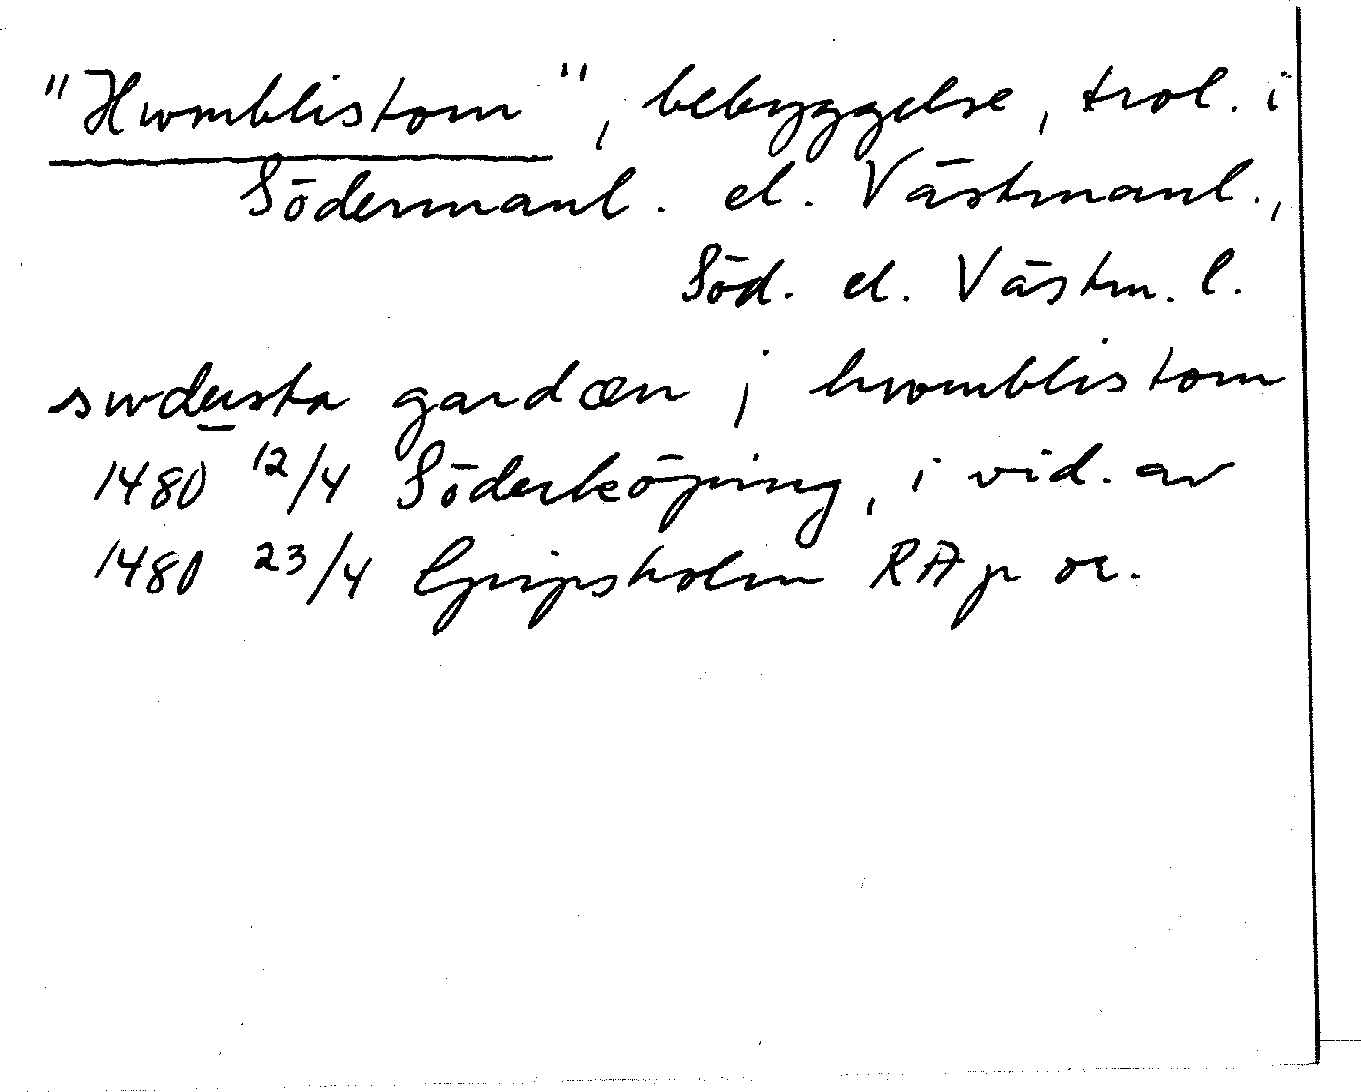 "Hwmblistom", bebyggelse, trol. i
Södermanl. el. Västmanl.,
Söd. el. Västm. l.
swdersta gardæn j hwmblistom
1480 12/4 Söderköping, i vid. av
1480 23/4 Gripsholm RAp or.